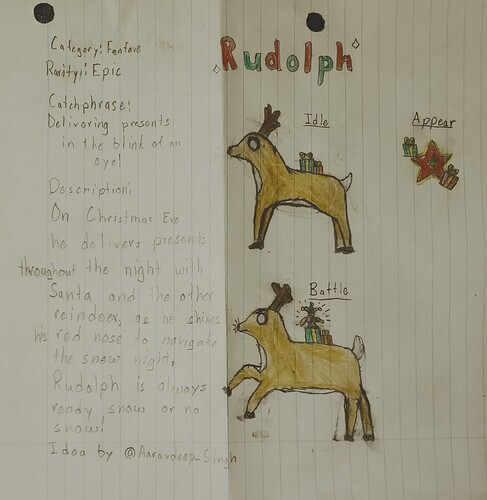 Rudolph
Category: Fanfave
Rarity: Epic
Catchphrase:
Delivering presents
in the blink of an
eye!
Description:
On Christmas Eve
he delivers presents
throughout the night with
Santa and the other
reindeer, as he shines
his red nose to navigate
the snow night.
Rudolph is always
ready snow or no
snow!
Idea by @Aaravdeep_Singh
Idle
Appear
Battle